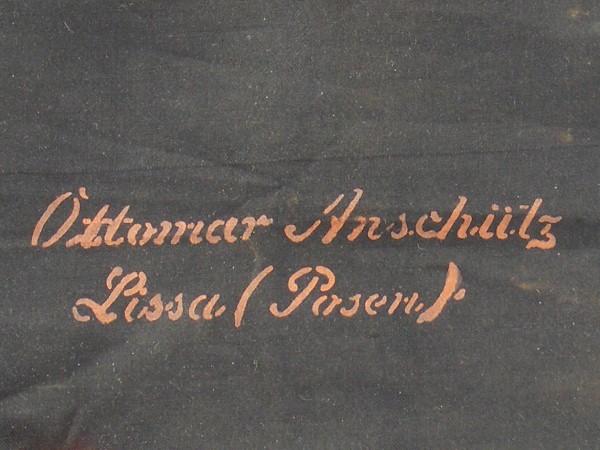 Ottomar Anschütz
Lissa (Posen).